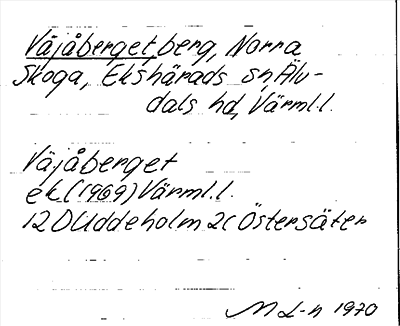 Väjåberget, berg, Norra
Skoga, Ekshärads sn, Älv-
dals hd, Värml.l.
Väjåberget
ek. (1969) Värml.l.
12D Uddeholm 2c Östersäter
M L-n 1970